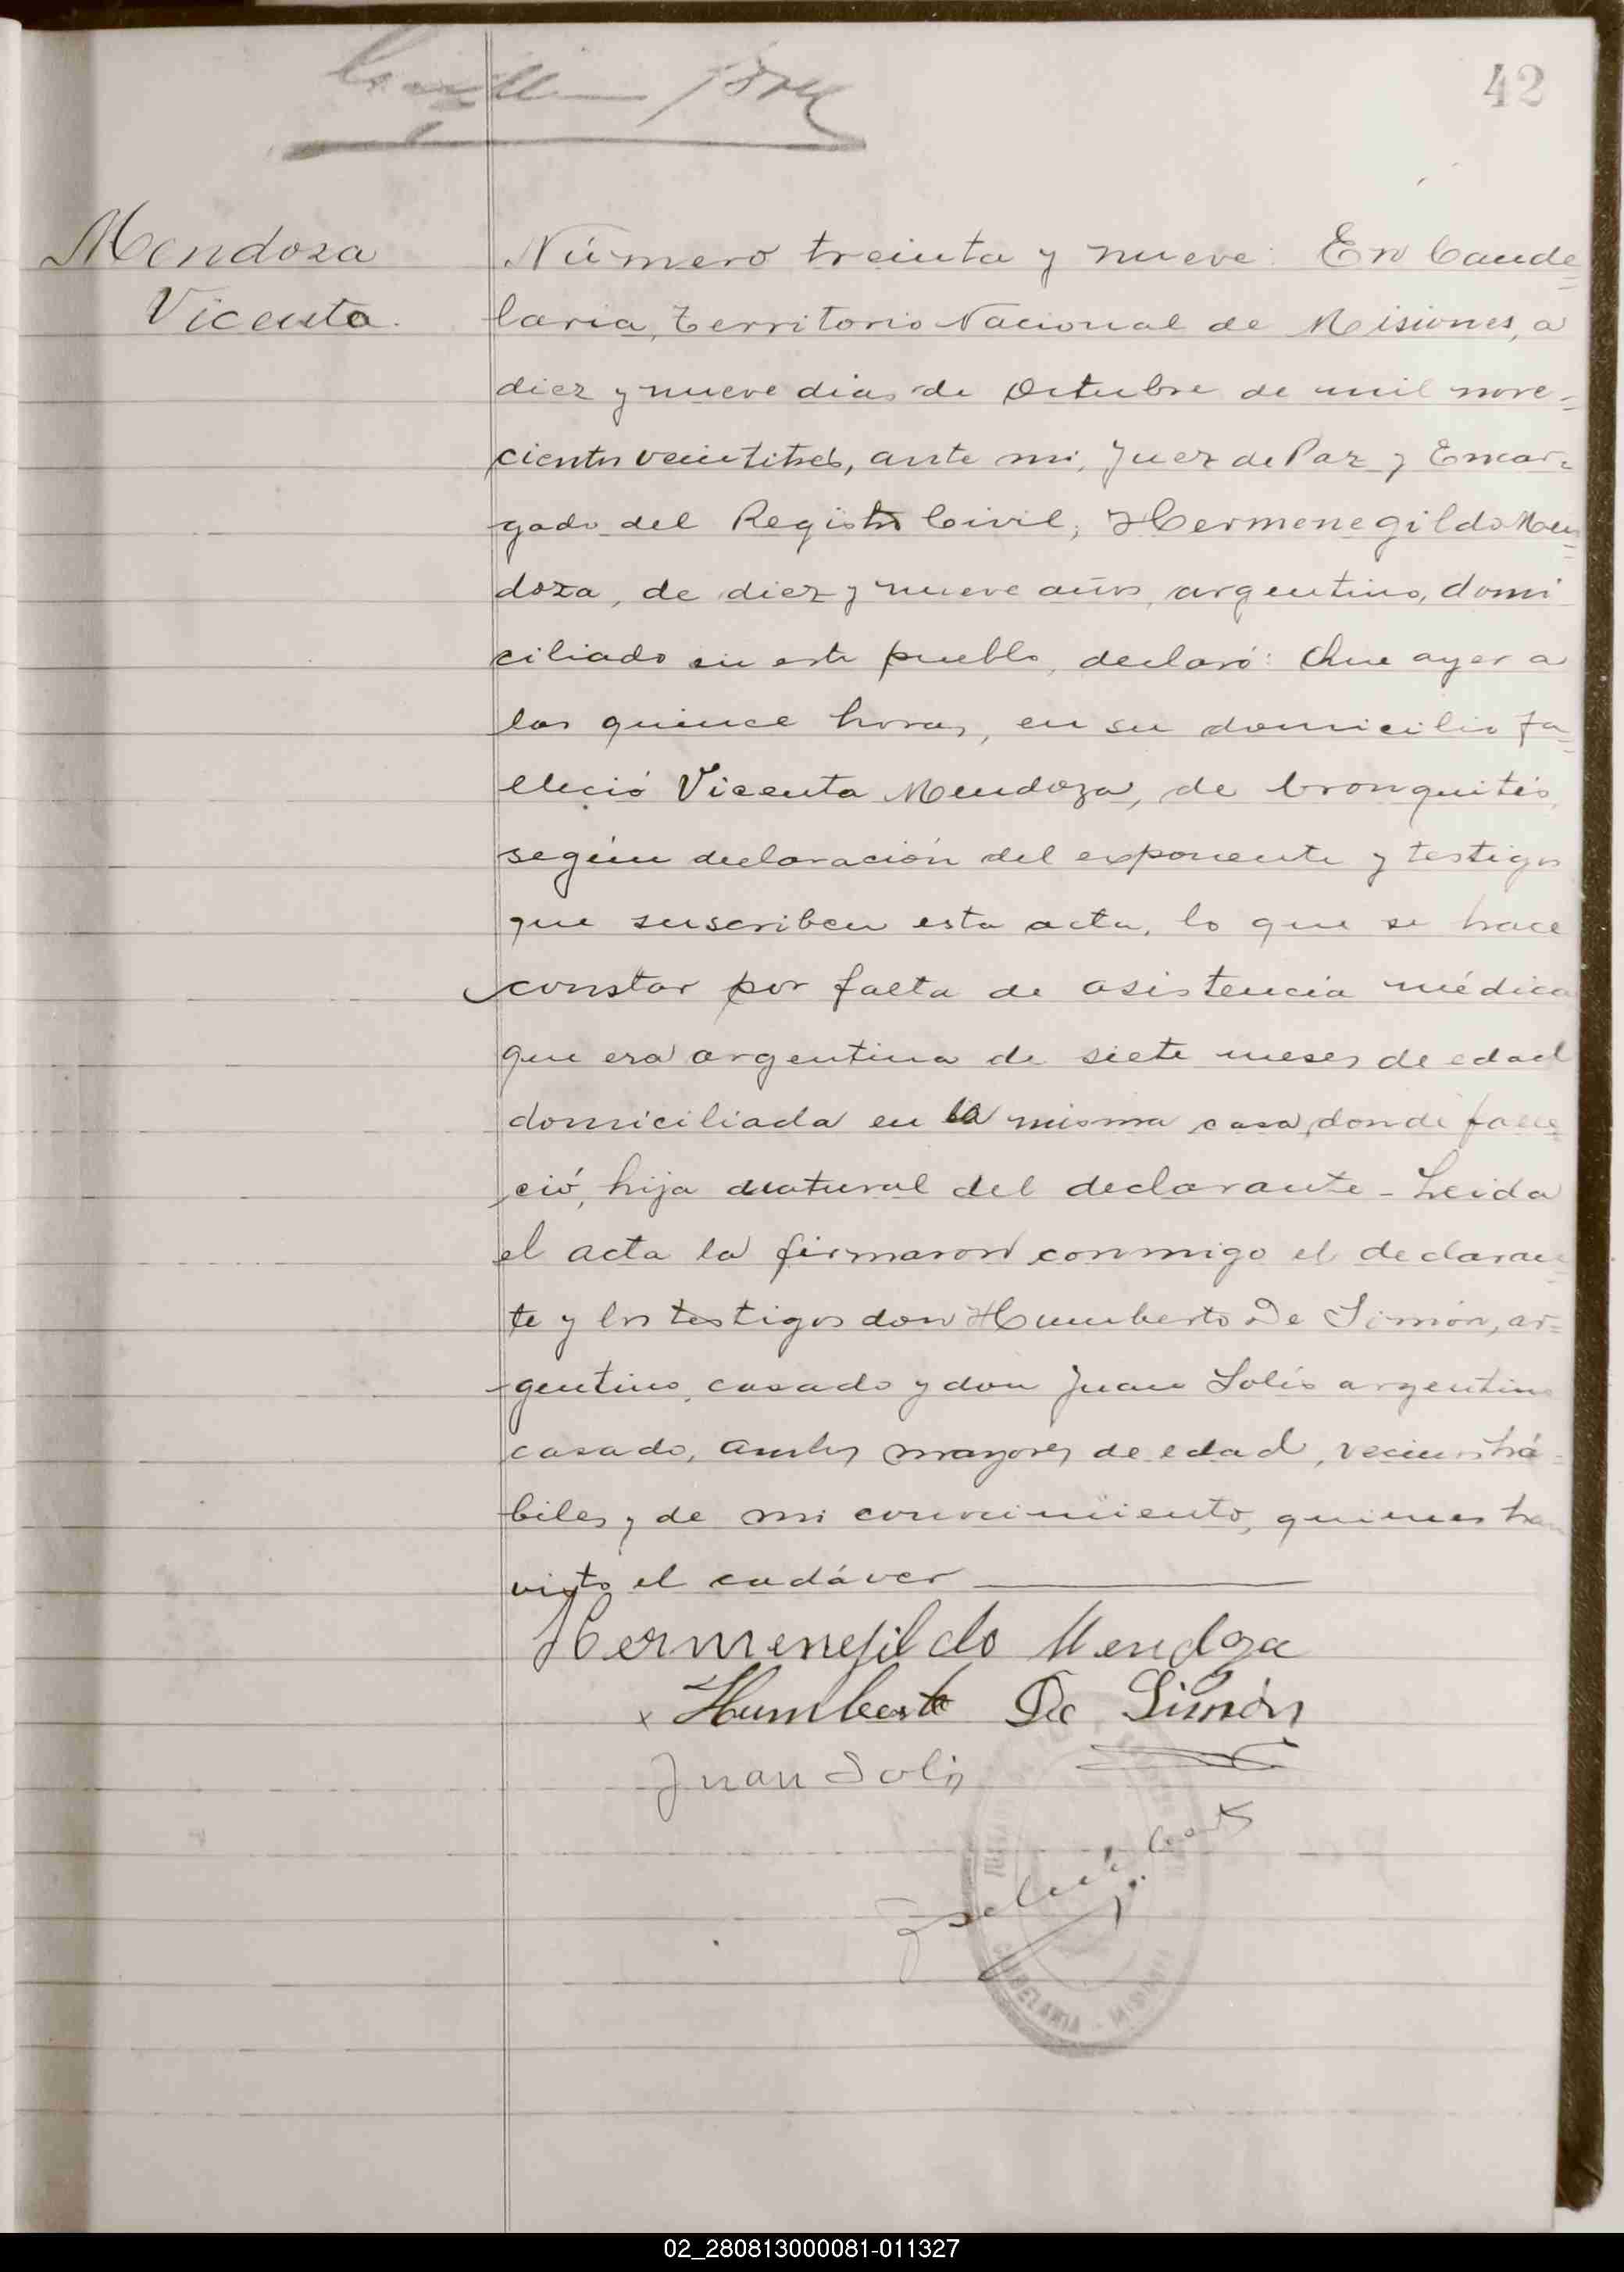 42
Mendoza
Vicenta.
Número treinta y nueve. En Cande=
laria, Territorio Nacional de Misiones, a
diez y nueve dias de Octubre de mil nove-
cientos veintitrés, ante mi, Juez de Paz y Encar-
gado del Registro Civil, Hermenegildo Men=
doza, de diez y nueve años, argentino, domi
ciliado en este pueblo, declaró: Que ayer a
las quince horas, en su domicilio fa=
lleció Vicenta Mendoza, de bronquitis,
según declaración del exponente y testigos
que suscriben esta acta, lo que se hace
constar por falta de asistencia médica
que era argentina de siete meses de edad
domiciliada en la misma casa donde falle
ció, hija natural del declarante - Leida
el acta la firmaron conmigo el declaran=
te y los testigos don Humberto De Simón, ar=
gentino, casado y don Juan Solis argentino
casado, ambos mayores de edad, vecinos há=
biles y de mi conocimiento, quienes han
visto el cadáver
Hermenejildo Mendoza
x Humberto De Simón
Juan Solis
CANDELARIA - MISIONES
02_280813000081-011327